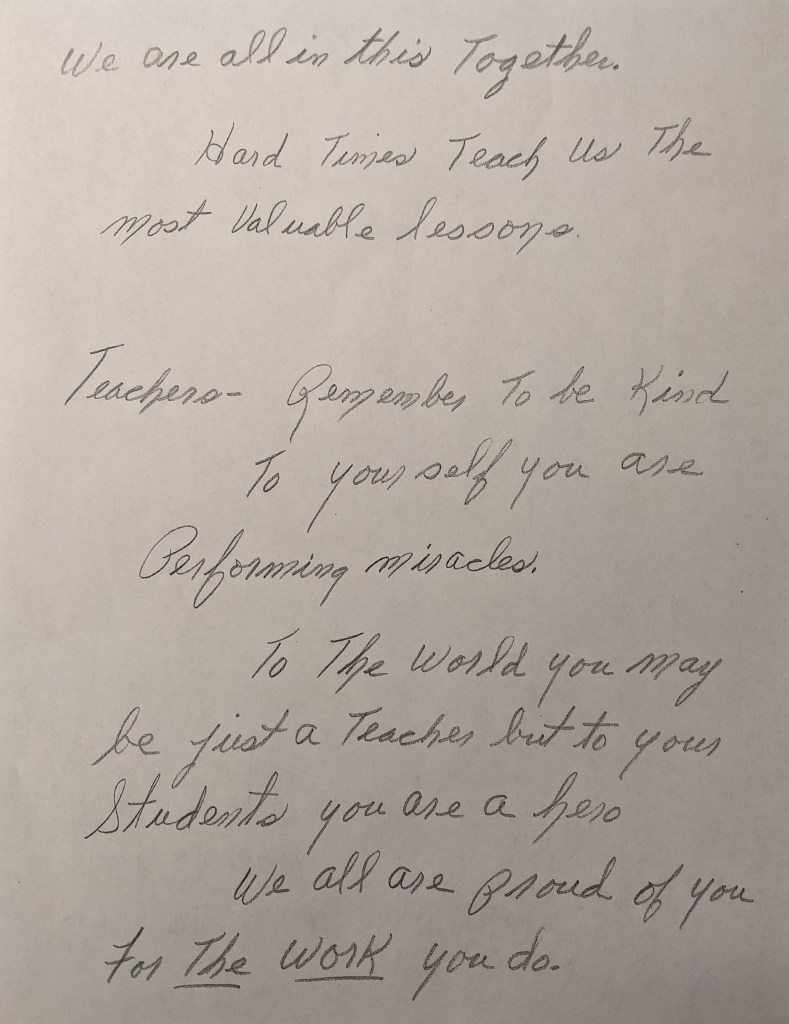 We are all in this Together.
Hard Times Teach Us The
most Valuable lessons.
Teachers- Remember To be Kind
To your self you are
Performing miracles.
To The World you may
be just a Teacher but to your
Students you are a hero
We all are proud of you
For The Work you do.